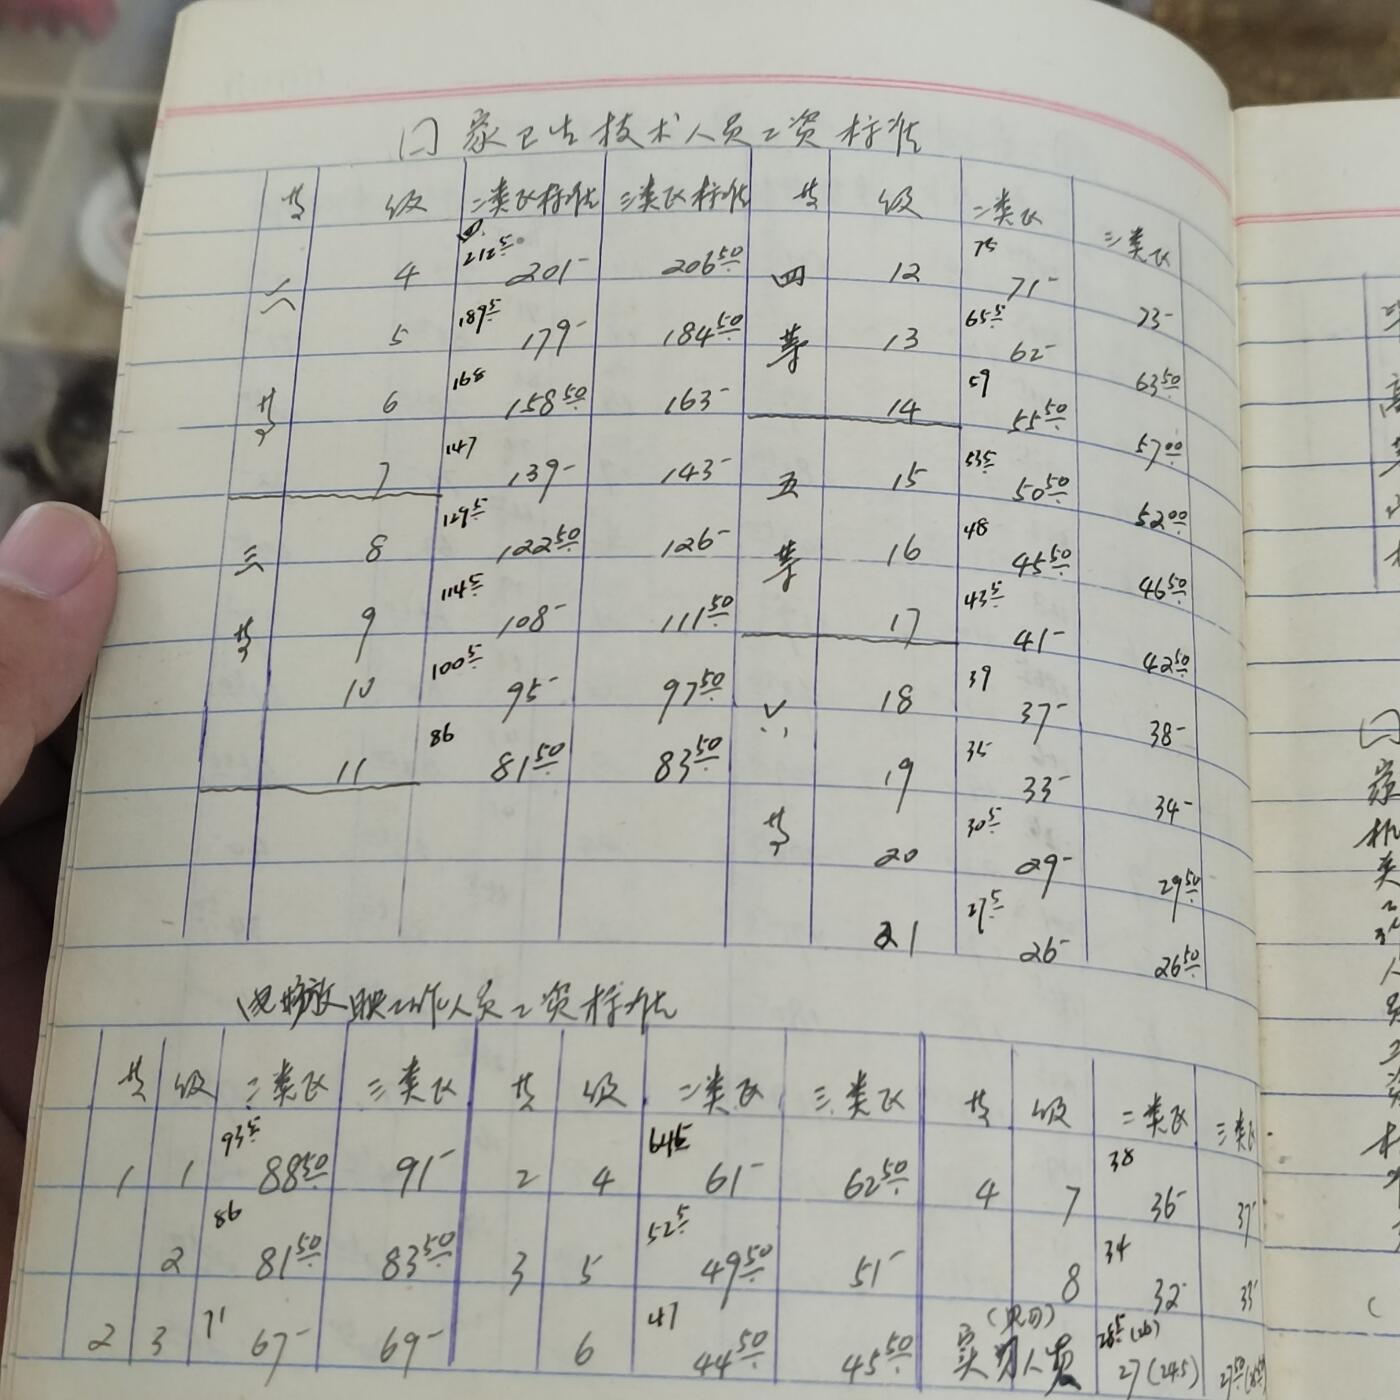 国家卫生技术人员工资标准
等 级 二类区标准 三类区标准 等 级 二类区 三类区
二等 4 212.5 201- 206.50 四等 12 75 71- 73-
5 189.5 179- 184.50 13 65.5 62- 63.50
6 168 158.50 163- 14 59 55.50 57.00
7 147 139- 143- 五等 15 53.5 50.50 52.00
三等 8 129.5 122.50 126- 16 48 45.50 46.50
9 114.5 108- 111.50 17 43.5 41- 42.50
10 100.5 95- 97.50 六等 18 39 37- 38-
11 86 81.50 83.50 19 35 33- 34-
20 30.5 29- 29.50
21 27.5 26- 26.50
电影放映工作人员工资标准
等 级 二类区 三类区 等 级 二类区 三类区 等 级 二类区 三类区
1 1 93.5 88.50 91- 2 4 64.5 61- 62.50 4 7 38 36- 37-
2 86 81.50 83.50 3 5 52.5 49.50 51- 8 34 32- 33-
2 3 71 67- 69- 6 47 44.50 45.50 实习人员 28.5 (26) 27 (24.5) 27.50